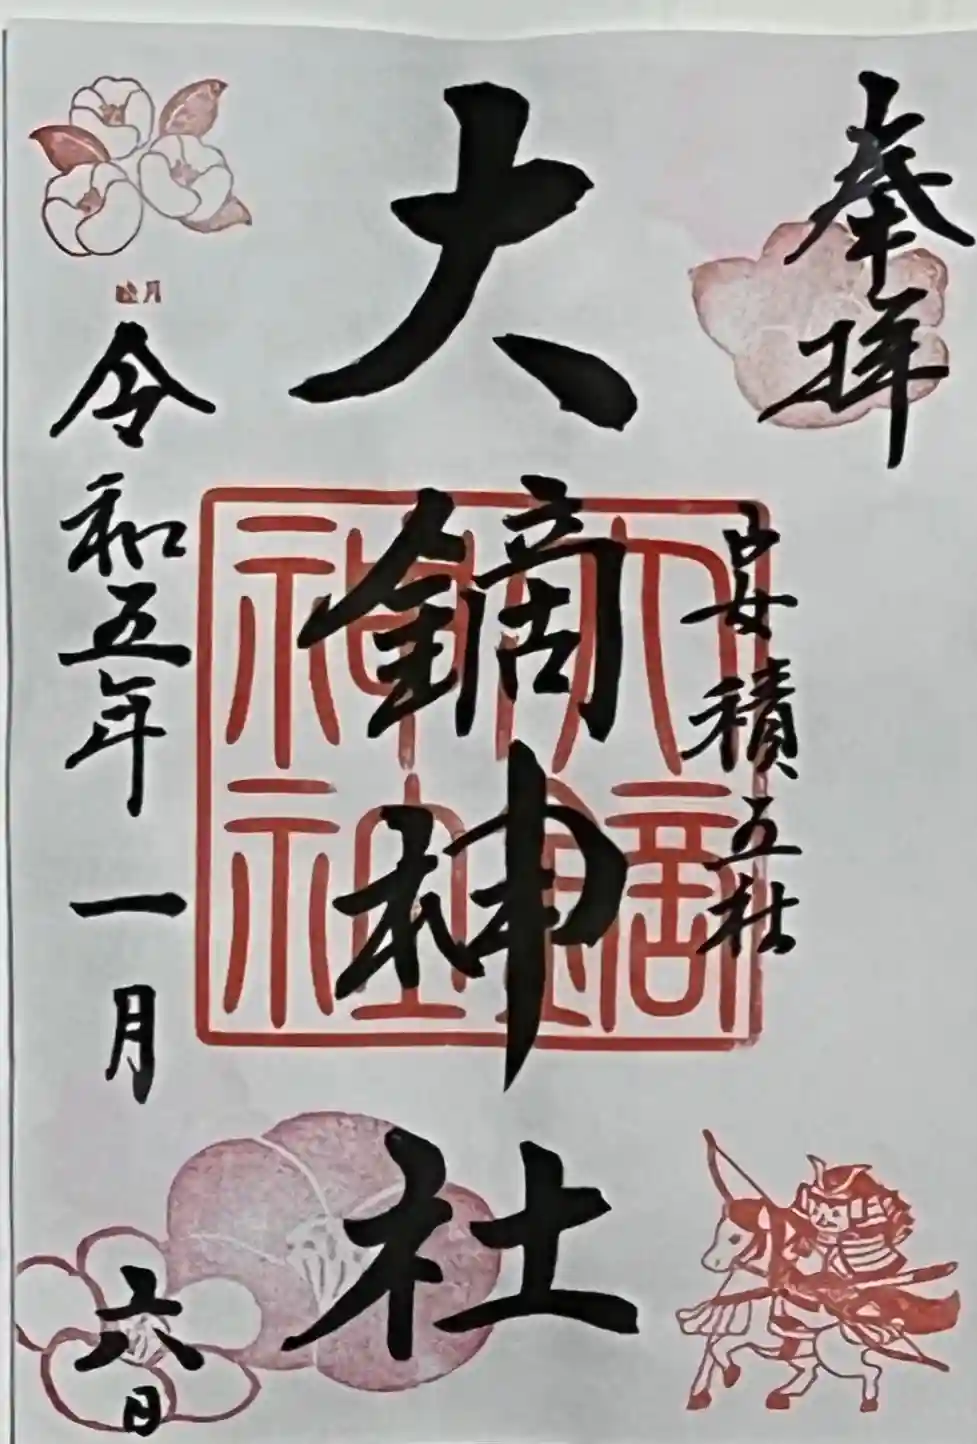 奉拝
安積五社
大鏑神社
大鏑神社
睦月
令和五年一月六日